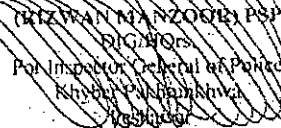 (RIZWAN MANZOOR) PSP
DIG/HQrs,
For Inspector General of Police
Khyber Pakhtunkhwa,
Peshawar